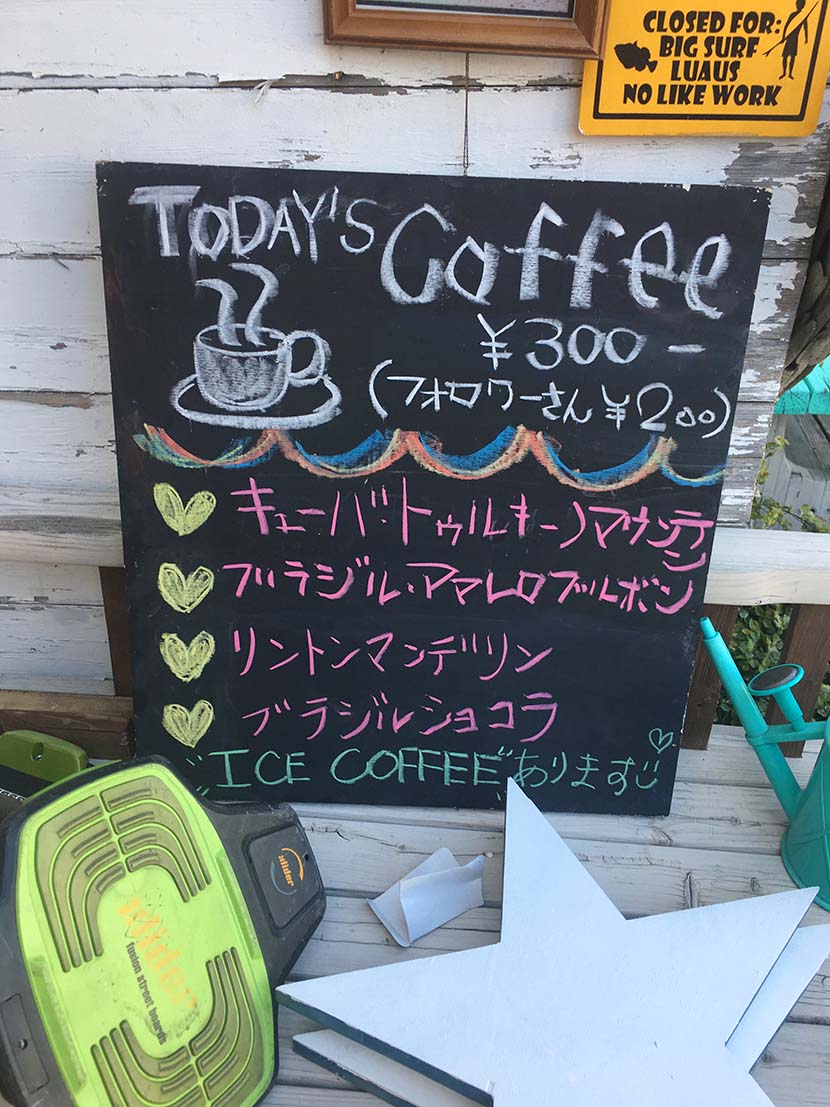 CLOSED FOR:
BIG SURF
LUAUS
NO LIKE WORK
TODAY'S Coffee
¥300-
(フォロワーさん¥200)
キューバ・トゥルキーノマウンテン
ブラジル・アマレロブルボン
リントンマンデリン
ブラジルショコラ
ICE COFFEEあります
xlider
xlider
fusion street boards